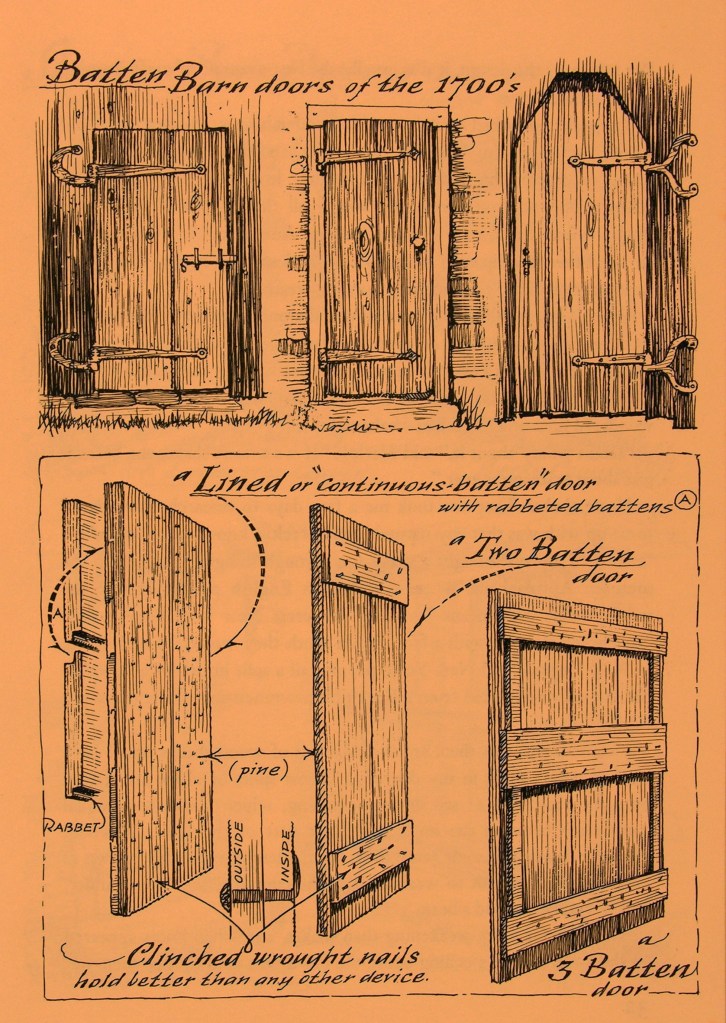 Batten Barn doors of the 1700's
a Lined or "continuous-batten" door
with rabbeted battens A
a Two Batten
door
A
(pine)
RABBET
OUTSIDE
INSIDE
Clinched wrought nails
hold better than any other device.
a
3 Batten
door